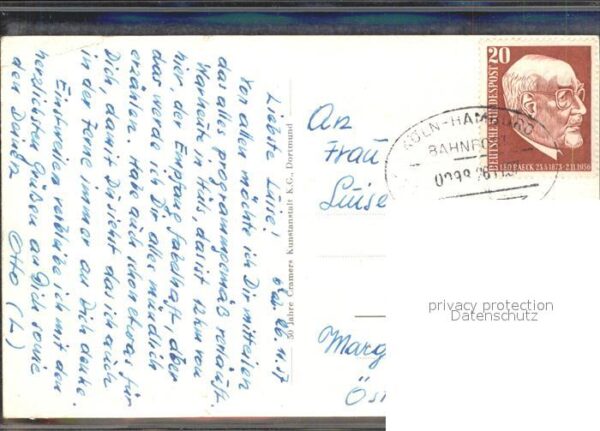 Liebste Luise!
Vor allem möchte ich Dir mitteilen
das alles programmgemäß verläuft.
Warheute in Hüls, das ist 12 km von
hier, der Empfang fabelhaft, aber
das werde ich Dir alles mündlich
erzählen. Habe auch schon etwas für
Dich, damit Du siehst das ich auch
in der Ferne immer an Dich denke.
Einstweilen verbleibe ich mit den
herzlichsten Grüßen an Dich sowie
den Deinen Otto (L)
50 Jahre Cramers Kunstanstalt K.G., Dortmund
An
Frau
Luise
Marg
Öst
20
DEUTSCHE BUNDESPOST
LEO BAECK 23.5.1873-2.11.1956
KÖLN-HAMBURG
BAHNPOST
privacy protection
Datenschutz